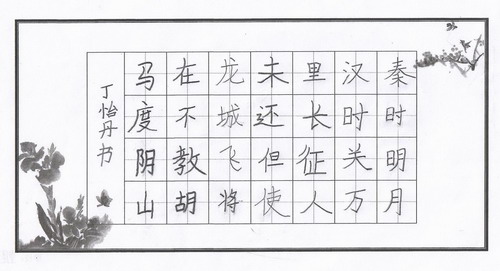 秦时明月
汉时关万
里长征人
未还但使
龙城飞将
在不教胡
马度阴山
丁怡丹书